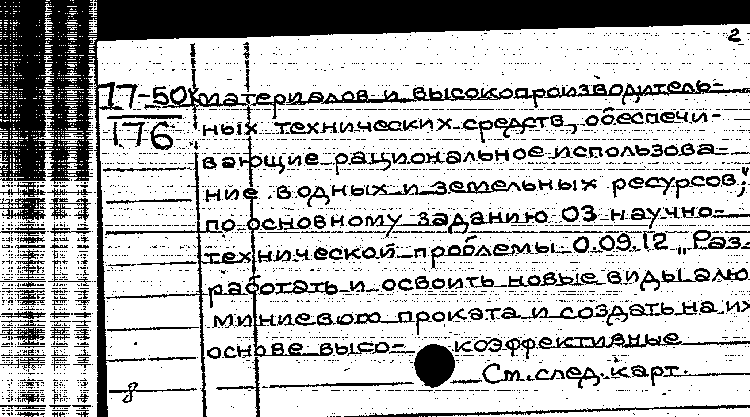 2
77-50к материалов и высокопроизводитель-
176 ных технических средств, обеспечи-
вающие рациональное использова-
ние водных и земельных ресурсов,"
по основному заданию 03 научно-
технической проблемы 0.09.12 „Раз-
работать и освоить новые виды алю
миниевого проката и создать на их
основе высо- коэффективные
См. след. карт.
8